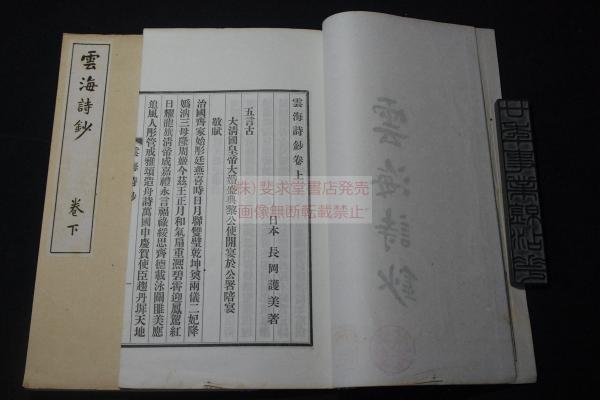 雲海詩鈔
卷下
雲海詩鈔卷上
日本 長岡護美著
五言古
大清國皇帝大婚盛典黎公使開宴於公署陪宴
敬賦
治國齊家始彤廷燕喜時日月聯雙璧乾坤奠兩儀二妃降
嬀汭三母隆周姬今茲王正月和氣扇重熙碧霄迎鳳駕紅
日耀龍旗清帝成嘉禮永言福祿綏思齊德載泳關雎美應
追風人彤管戒雅頌造舟詩萬國申慶賀使臣趨丹墀天地
雲海詩鈔
一
雲海詩鈔
株）斐求堂書店発売
画像無断転載禁止